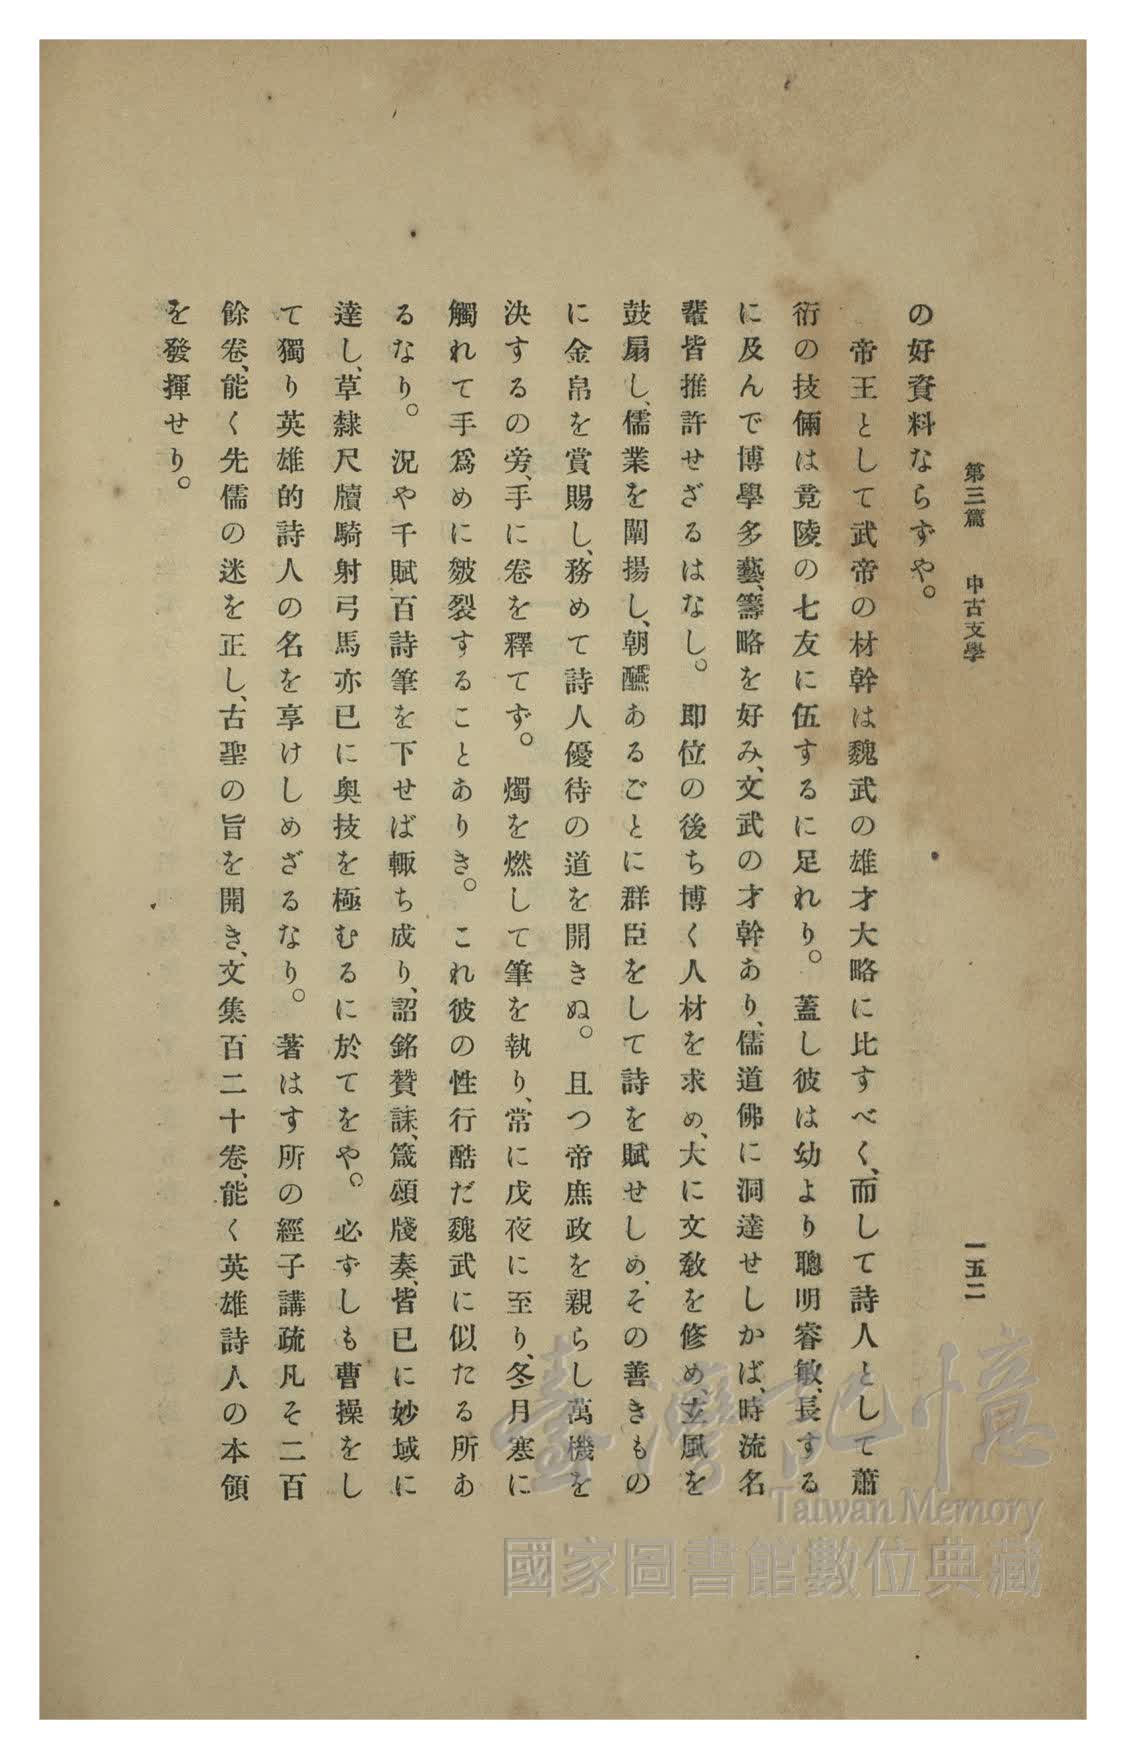 第三篇　中古文學
一五二
の好資料ならずや。
帝王として武帝の材幹は魏武の雄才大略に比すべく、而して詩人として蕭
衍の技倆は竟陵の七友に伍するに足れり。蓋し彼は幼より聰明睿敏、長する
に及んで博學多藝、籌略を好み、文武の才幹あり、儒道佛に洞達せしかば、時流名
輩皆推許せざるはなし。即位の後ち博く人材を求め、大に文敎を修め、立風を
鼓扇し、儒業を闡揚し、朝醼あるごとに群臣をして詩を賦せしめ、その善きもの
に金帛を賞賜し、務めて詩人優待の道を開きぬ。且つ帝庶政を親らし萬機を
決するの旁、手に卷を釋てず。燭を燃して筆を執り、常に戊夜に至り、冬月寒に
觸れて手爲めに皴裂することありき。これ彼の性行酷だ魏武に似たる所あ
るなり。況や千賦百詩筆を下せば輙ち成り、詔銘贊誄、箴頌牋奏、皆已に妙域に
達し、草隸尺牘騎射弓馬亦已に奥技を極むるに於てをや。必ずしも曹操をし
て獨り英雄的詩人の名を享けしめざるなり。著はす所の經子講疏凡そ二百
餘卷、能く先儒の迷を正し、古聖の旨を開き、文集百二十卷、能く英雄詩人の本領
を發揮せり。
臺灣記憶
Taiwan Memory
國家圖書館數位典藏